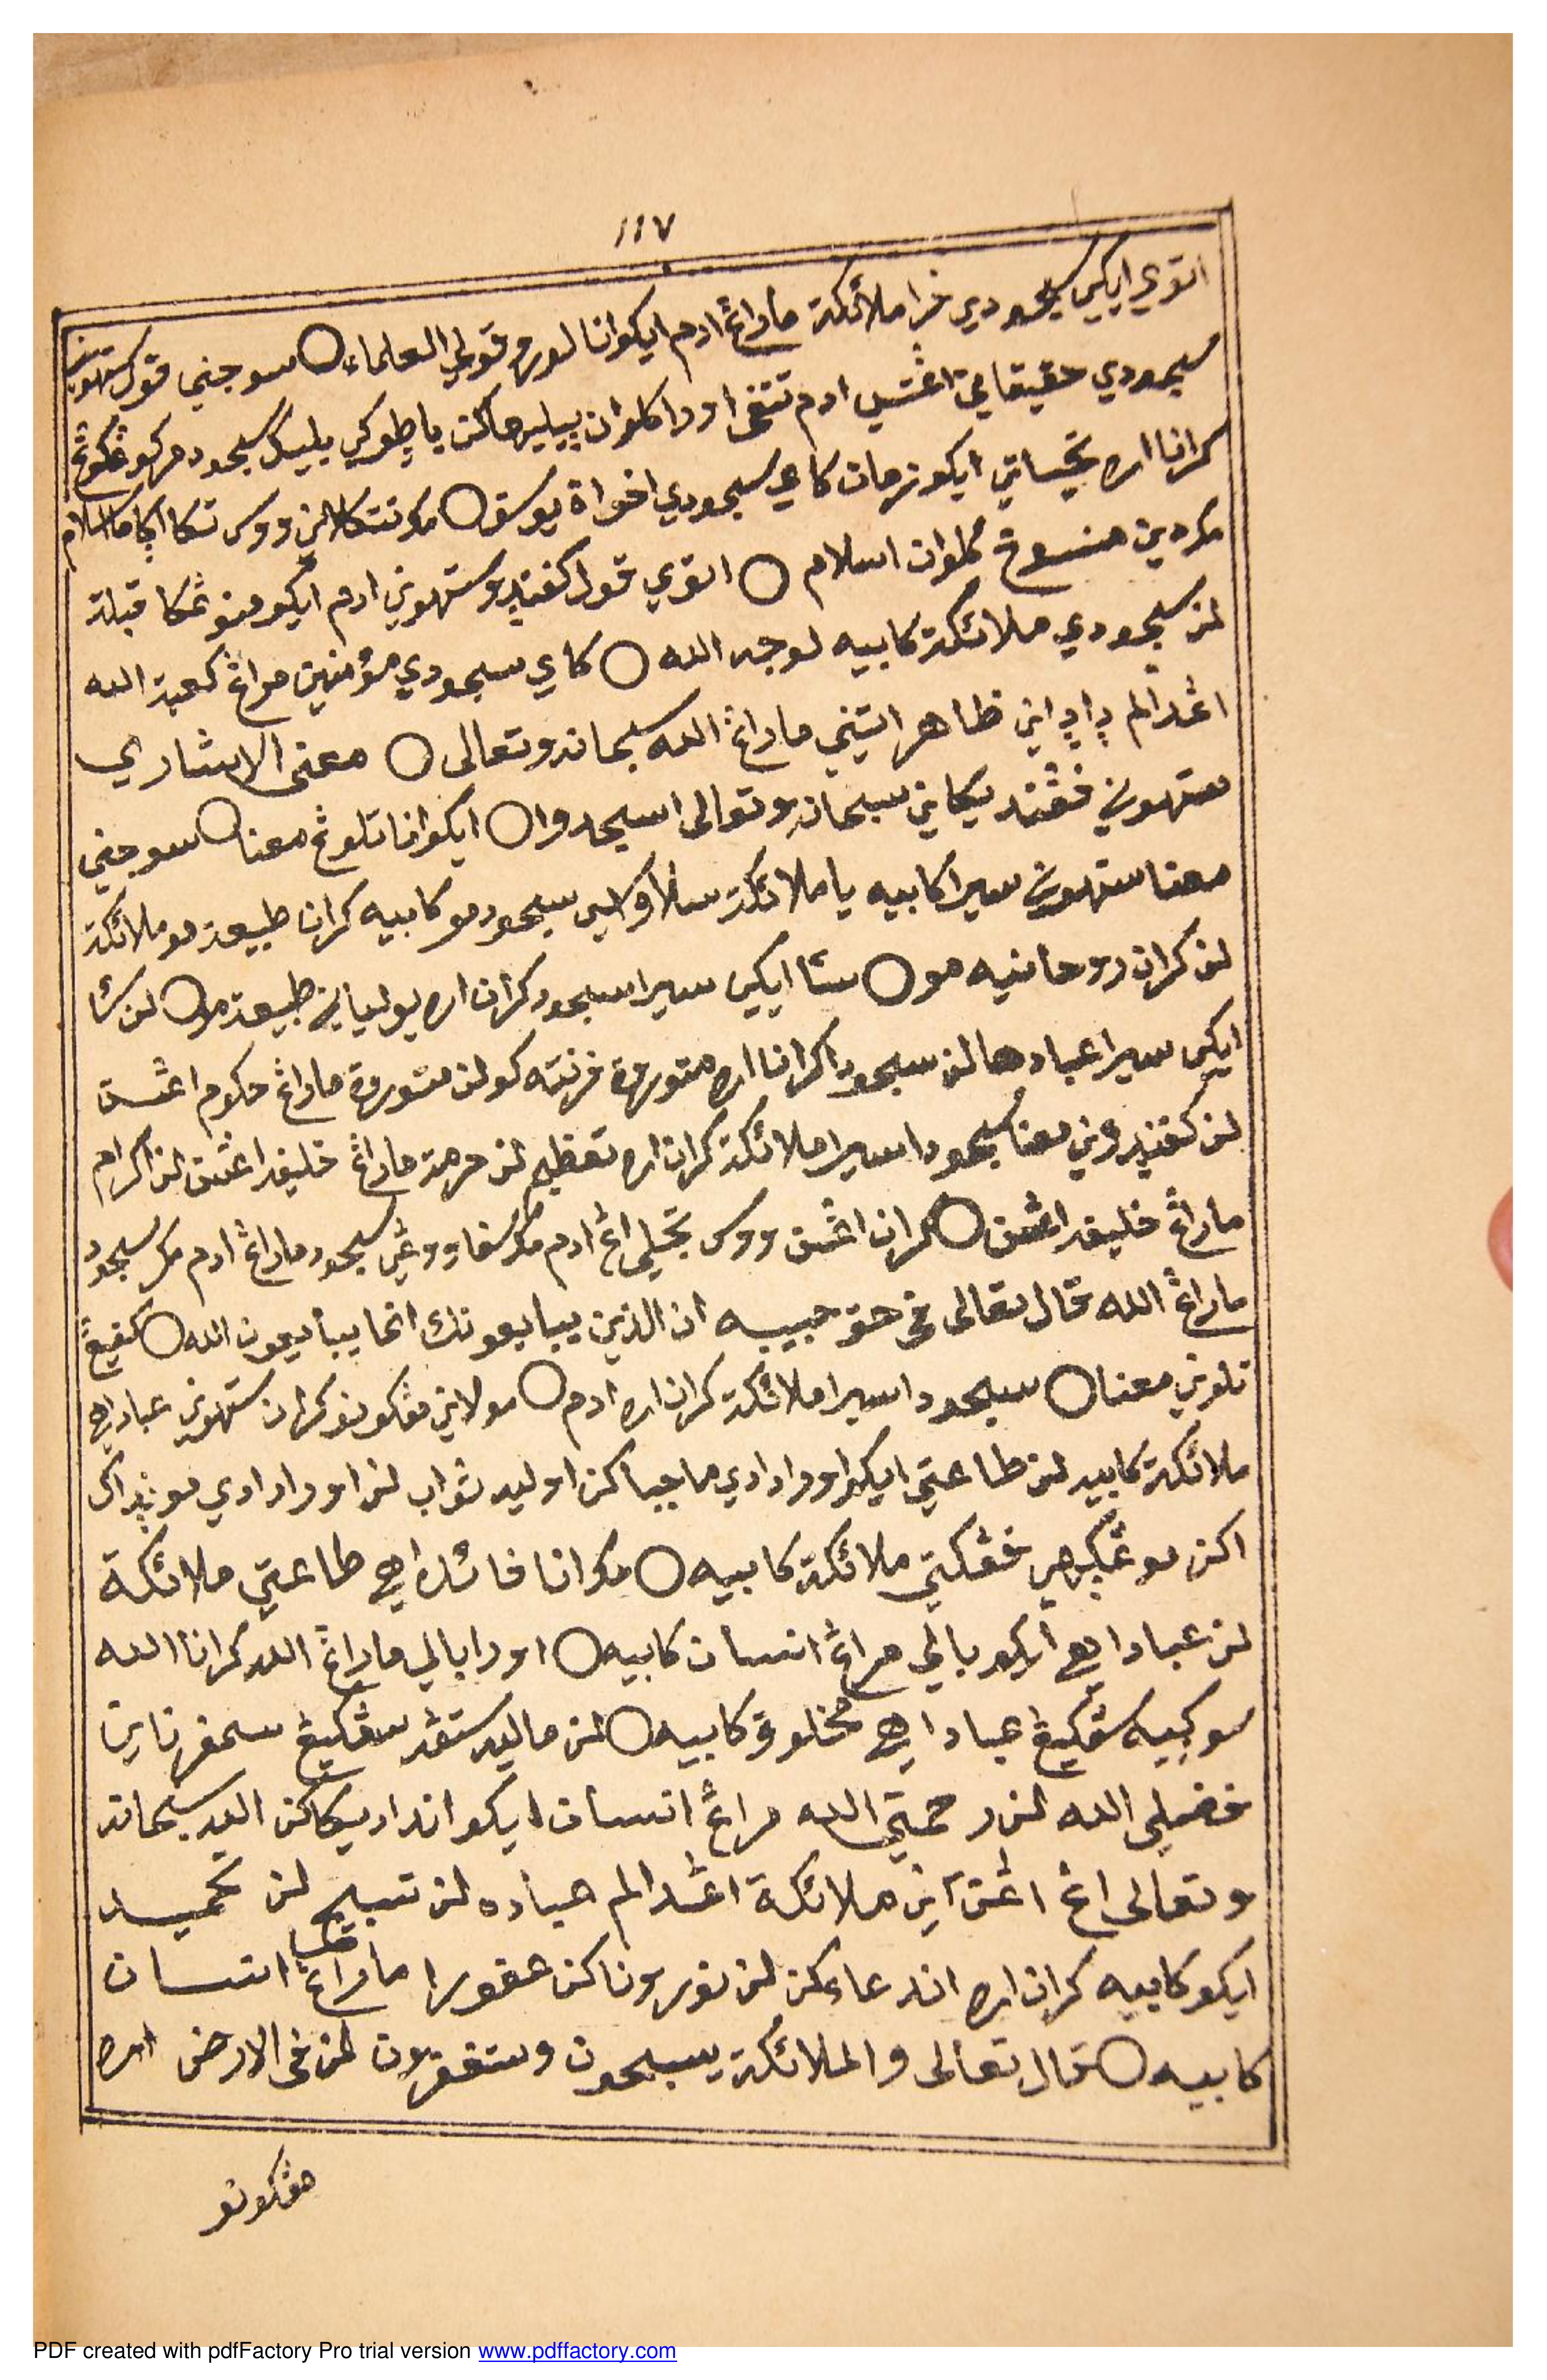 ١١٧
اتوي ايكي سجودي فرا ملائكة ماراڠ ادم ايكو انا لورو قولي العلماء ○ سوجيني قول ستهوني
سجودي حقيقاني اڠتسي ادم تتفي اورا كلوان ميليهاكن باطوكي بليك سجود مركوڠكوڠ
كرانا اره تحيساتي ايكو زمان كاي سجودي اخواة يوسف ○ مك تتكلاني ووس تكا اكاما اسلام
مك دين منسوخ كلوان اسلام ○ اتوي قول كفيندو ستهوني ادم ايكو مڠوڠكا قبلة
لن سجودي ملائكة كابيه لوجه الله ○ كاي سجودي مؤمنين مراڠ كعبة الله
اڠدالم ظاهر اتيني ماراڠ الله سبحانه وتعالى ○ معنى الاشاري
ستهوني ڤڠنديكاني سبحانه وتعالى اسجدوا ○ ايكو انا تلوڠ معنا ○ سوجيني
معنا ستهوني سيرا كابيه يا ملائكة سلاوسي سجود مو كابيه كران طبيعة مو ملائكة
لن كران روحانيه مو ○ سڠا ايكي سيرا سجود كران اره يولياني طبيعة مو ○ لن سڠا
ايكي سيرا عبادها لن سجودا كرانا اره متوروة فرنته كو لن متوروة ماراڠ حكوم اڠسن
لن كفيندوني معنا سجودا سيرا ملائكة كران اره تعظيم لن حرمة ماراڠ خليفه اڠسن لن اكرام
ماراڠ خليفه اڠسن ○ كران اڠسن ووس تجلي اڠ ادم مك سفا ووڠي سجود ماراڠ ادم مك سجود
ماراڠ الله قال تعالى في حق حبيبه ان الذين يبايعونك انما يبايعون الله ○ كفيڠ
تلوني معنا ○ سجودا سيرا ملائكة كران اره ادم ○ مولاني مڠكونو كران ستهوني عباداهي
ملائكة كابيه لن طاعتي ايكو اورا دادي ماجباكن اوليه ثواب لن اورا دادي موندآك
اكن موڠكهي ڤڠكتي ملائكة كابيه ○ مك انا فائده اهي طاعتي ملائكة
لن عباداهي ايكو بالي مراڠ انسان كابيه ○ اورا بالي ماراڠ الله كرانا الله
سوكيه سڠكيڠ عباداهي مخلوق كابيه ○ لن ماليه ستڠه سڠكيڠ سمفرناني
فضلي الله لن رحمتي الله مراڠ انسان ايكو اندادیكاكن الله سبحانه
وتعالى اڠ اڠتاني ملائكة اڠدالم عباده لن تسبيح لن تحميد
ايكو كابيه كران اره اندعاءكن لن نورونا كن عفورا ماراڠ انسان
كابيه ○ قال تعالى والملائكة يسبحون وستغفرون لمن فى الارض اره
مڠكونو
PDF created with pdfFactory Pro trial version www.pdffactory.com